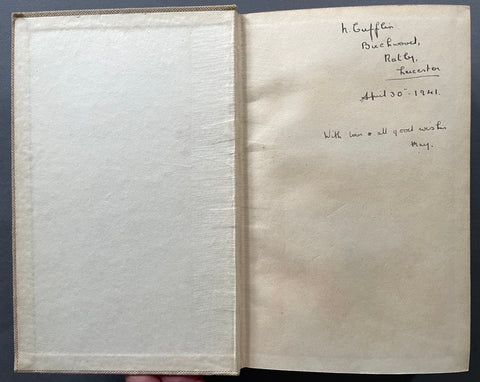 N. Cufflin
Birchwood,
Ratby,
Leicester
April 30 - 1941.
With love & all good wishes
May.